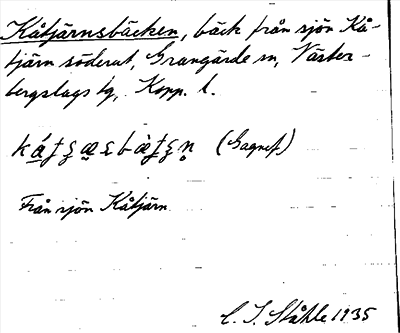 Kåtjärnsbäcken, bäck från sjön Kå-
tjärn söderut, Grangärde sn, Väster-
bergslags tg, Kopp. l.
(Gagnef)
Från sjön Kåtjärn.
C. I. Ståhle 1935